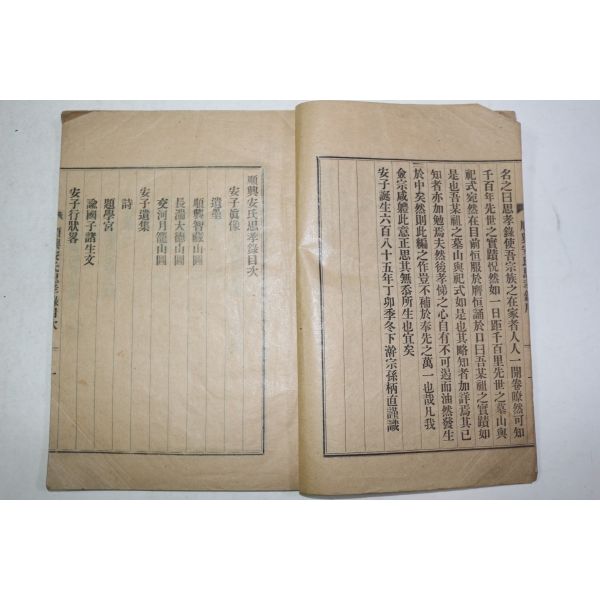 名之曰思孝錄使吾宗族之在家者人人一開卷瞭然可知
千百年先世之實蹟怳然如一日距千百里先世之墓山與
祀式宛然在目前恒服於膺恒誦於口曰吾某祖之實蹟如
是也吾某祖之墓山與祀式如是也其略知者加詳焉其已
知者亦加勉焉夫然後孝悌之心自有不可遏而油然發生
於中矣然則此編之作豈不補於奉先之萬一也哉凡我
僉宗咸體此意正思其無忝所生也宜矣
安子誕生六百八十五年丁卯季冬下澣宗孫柄直謹識
順興安氏思孝錄目次
安子眞像
遺墨
順興智藏山圖
長湍大德山圖
交河月籠山圖
安子遺集
詩
題學宮
諭國子諸生文
安子行狀畧
順興安氏思孝錄目次
一